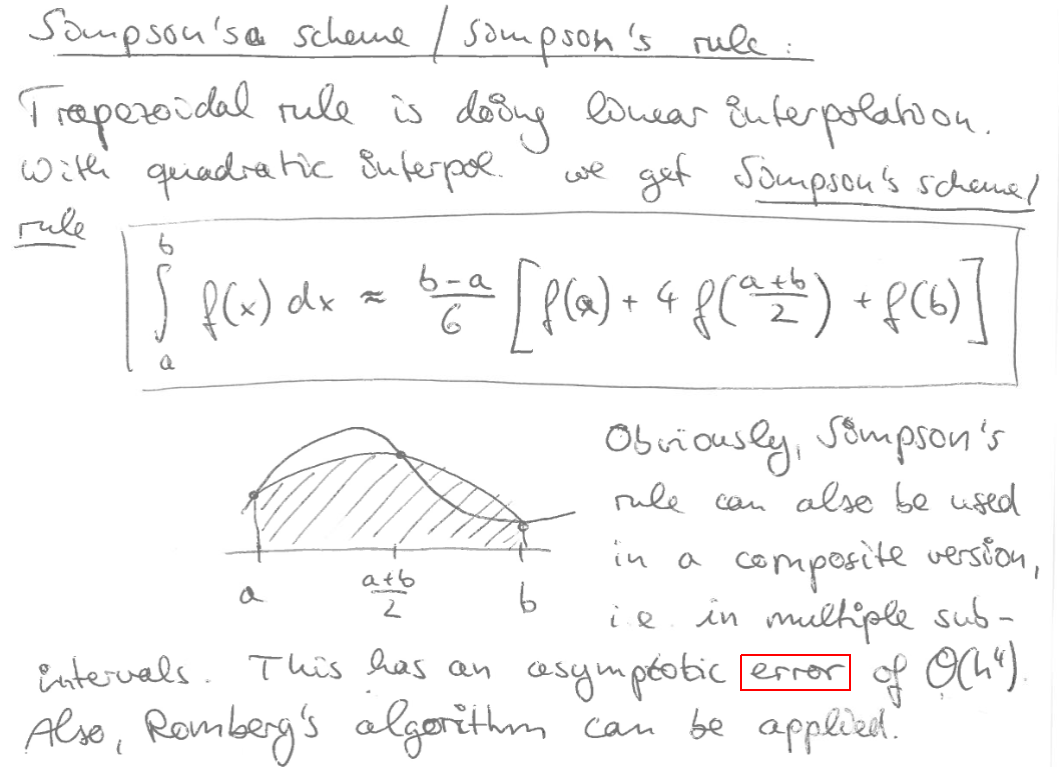 Simpson's scheme / Simpson's rule:
Trapezoidal rule is doing linear interpolation.
With quadratic interpol. we get Simpson's scheme/
rule
∫_a^b f(x) dx ≈ (b-a)/6 [f(a) + 4 f((a+b)/2) + f(b)]
a (a+b)/2 b
Obviously, Simpson's
rule can also be used
in a composite version,
i.e. in multiple sub-
intervals. This has an asymptotic error of O(h⁴).
Also, Romberg's algorithm can be applied.